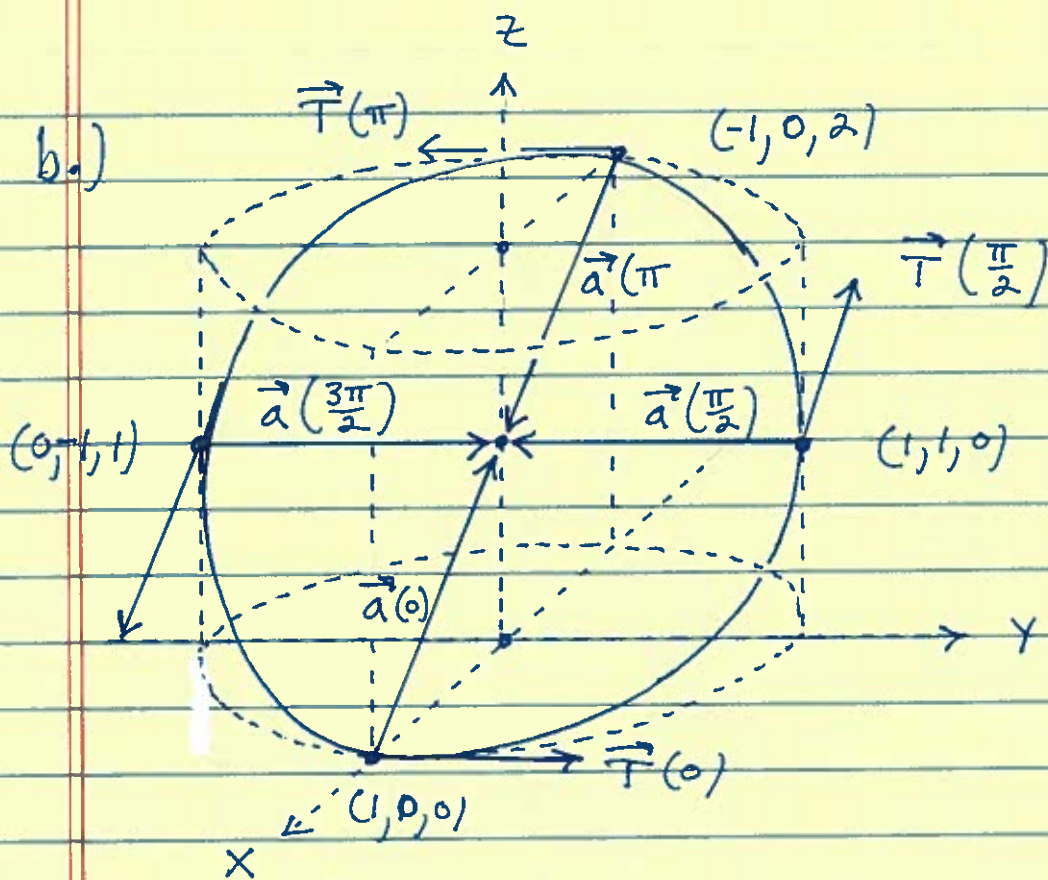 z
T⃗(π)
(-1, 0, 2)
b.)
a⃗(π
T⃗(π/2)
a⃗(3π/2)
a⃗(π/2)
(0,-1,1)
(1,1,0)
a⃗(0)
Y
T⃗(0)
(1,0,0)
X